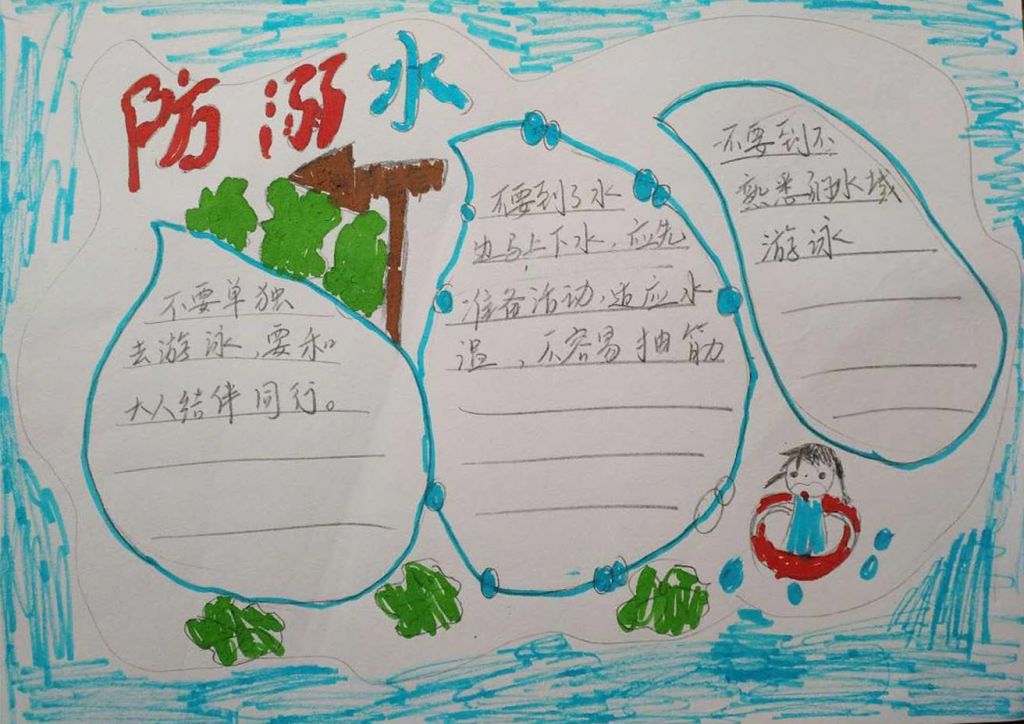 防溺水
不要单独
去游泳，要和
大人结伴同行。
不要到了水
边马上下水，应先
准备活动，适应水
温，不容易抽筋
不要到不
熟悉的水域
游泳